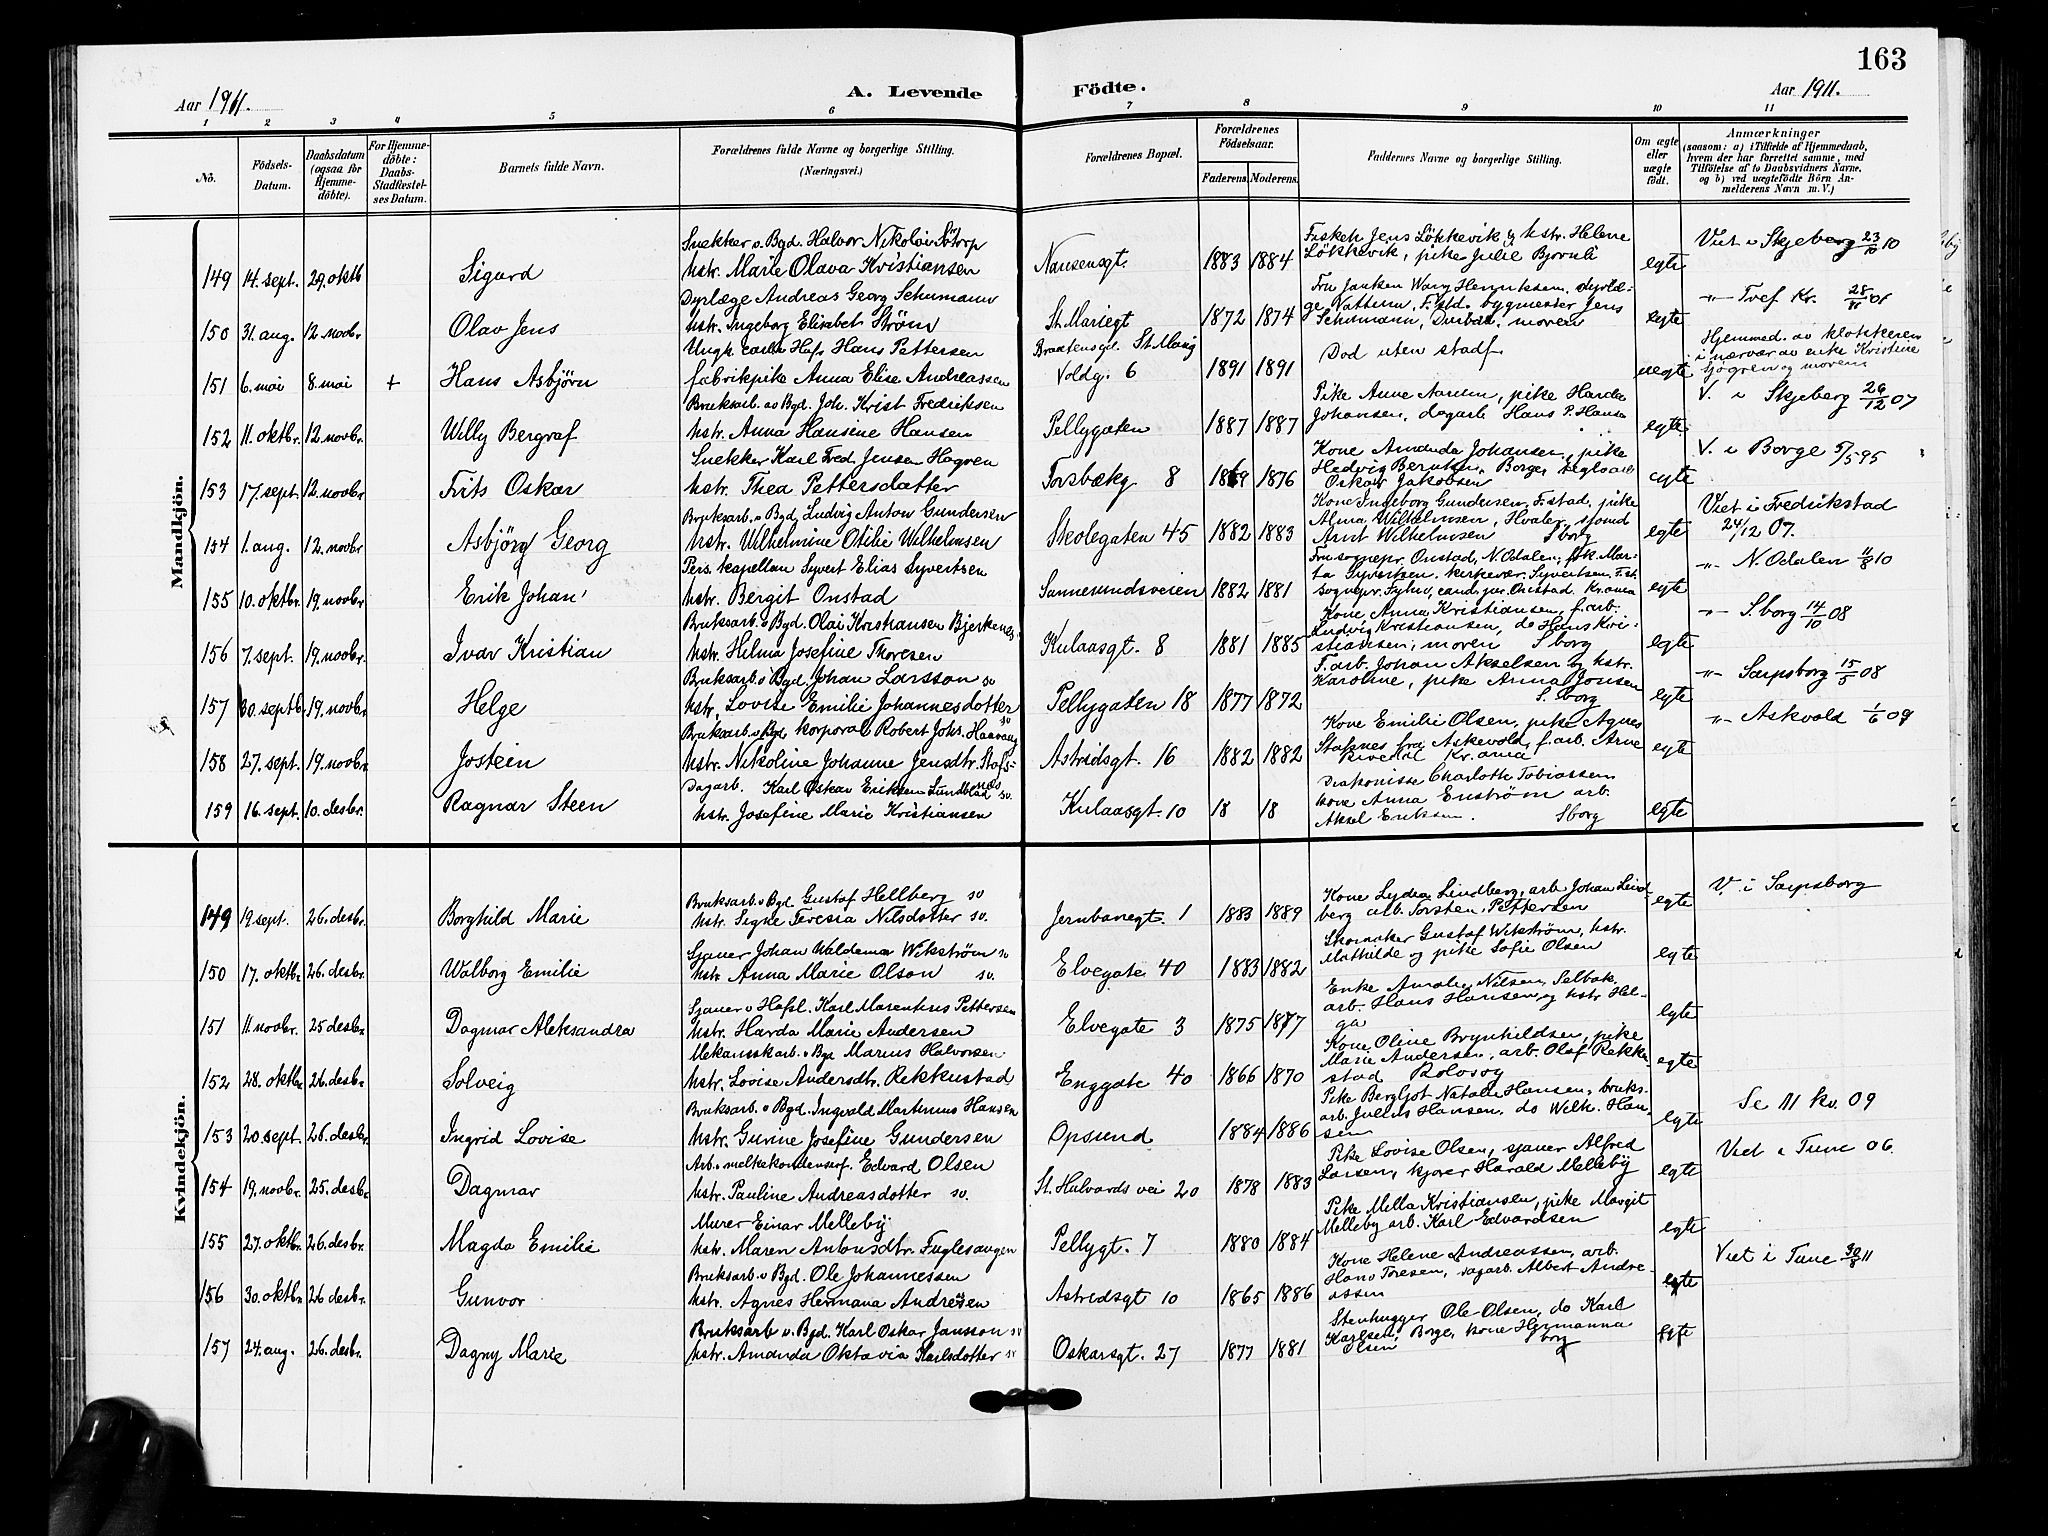 163
Aar 1911.
A. Levende Födte.
Aar 1911.
1 2 3 4 5 6 7 8 9 10 11
No.
Födsels-Datum.
Daabsdatum (ogsaa for Hjemme-döbte).
For Hjemme-döbte: Daabs-Stadfæstel-ses Datum.
Barnets fulde Navn.
Forældrenes fulde Navne og borgerlige Stilling. (Næringsvei.)
Forældrenes Bopæl.
Forældrenes Födselsaar.
Faderens. Moderens.
Faddernes Navne og borgerlige Stilling.
Om ægte eller uægte födt.
Anmærkninger (saasom: a) i Tilfælde af Hjemmedaab, hvem der har forrettet samme, med Tilföielse af to Daabsvidners Navne, og b) ved uægtefödte Börn An-melderens Navn m. V.)
Mandkjön.
Snekker v. Bgd. Halvor Nikolai Sötorp
149 14. sept. 29. oktb Sigurd hstr. Marie Olava Kristiansen Nansensgt. 1883 1884 Fiskeh Jens Lökkevik og hstr. Helene
Lökkevik, pike Julie Bjornli egte Viet i Skjeberg 23/10 10
Dyrlæge Andreas Georg Schumann
150 31. aug. 12. novbr Olav Jens hstr. Ingeborg Elisabet Strøm St. Mariegt 1872 1874
Schumann, moren egte
Ungk. Hans Pettersen
151 6. mai 8. mai + Hans Asbjørn fabrikpike Anna Elise Andreassen Voldg. 6 1891 1891 Död uten stadf. uegte Hjemmed. av klokkeren
i nærvær av enke Kristine
Sjøgren og moren
Bruksarb. av Bgd. Joh. Krist Fredriksen
152 11. oktbr. 12. novbr. Willy Bergraf hstr. Anna Hansine Hansen Pellygaten 1887 1887 Johansen, dagarb Hans P. Hansen egte. V. i Skjeberg 26/12 07
Snekker Karl Fred. Jensen Hagven
153 17. sept. 12. novbr Frits Oskar hstr. Thea Pettersdatter Torsbækg 8 1869 1876 Kone Amanda Johansen, pike
Oskar Jakobsen egte V. i Borge 5/5 95
Bruksarb. v Bgd. Ludvig Anton Gundersen
154 1. aug. 12. novbr Asbjørn Georg hstr. Wilhelmine Otilie Wilhelmsen Skolegaten 45 1882 1883 Kone Ingeborg Gundersen, F.stad, pike
Alma Wilhelmsen, Hvaler,
Arnt Wilhelmsen Sborg egte Viet i Fredrikstad
24/12 07.
Pers. kapellan Syvert Elias Syvertsen
155 10. oktbr. 19. novbr. Erik Johan hstr. Bergit Onstad Sannesundsveien 1882 1881 Fru sognepr. Onstad, N. Odalen, frk. Mar-
ta Syvertsen, kirkevær. Syvertsen, F.st.
sognepr. Fyhn, cand. jur. Onstad. Kr.ania egte -"- N. Odalen 11/8 10
Bruksarb. v Bgd. Olai Kristiansen Bjerkenes
156 7. sept. 19. novbr. Ivar Kristian hstr. Helma Josefine Thoresen Kulaasgt. 8 1881 1885 Kone Anna Kristiansen, f.arb.
Ludvig Kristiansen, do Hans Kri-
stiansen, moren Sborg egte -"- Sborg 14/10 08
Bruksarb. v Bgd. Johan Larsson sv
157 30. septb. 19. novbr. Helge hstr. Lovise Emilie Johannesdotter sv Pellygaten 18 1877 1872 F.arb. Johan Akselsen og hstr.
Karoline, pike Anna Jonsen
S.borg egte -"- Sarpsborg 15/5 08
Bruksarb. v Bgd korporal Robert Johs. Haavang
158 27. sept. 19. novbr. Jostein hstr. Nikoline Johanne Jensdtr. Stafs-
nes Astridsgt. 16 1882 1882 Kone Emilie Olsen, pike Agnes
Stafsnes fra Askevold, f.arb. Arne
Kr.ania egte -"- Askvold 1/6 09
Dagarb. Karl Oskar Eriksen Lundblad sv.
159 16. sept. 10. desbr. Ragnar Steen hstr. Josefine Marie Kristiansen Kulaasgt. 10 18 18 Diakonisse Charlotte Tobiassen
kone Anna Enström arb.
Aksel Eriksen. Sborg egte
Kvindekjön.
Bruksarb. v Bgd Gustaf Hellberg sv
149 19. sept. 26. desbr. Borghild Marie hstr. Signe Teresia Nilsdotter sv. Jernbanegt. 1 1883 1889 Kone Lydea Lindberg, arb Johan Lind-
berg arb. Torsten Pettersen egte V. i Sarpsborg
Sjauer Johan Waldemar Wikström sv
150 17. oktbr 26. desbr. Walborg Emilie hstr. Anna Marie Olson sv. Elvegate 40 1883 1882 Skomaker Gustaf Wikström, hstr.
Mathilde og pike Sofie Olsen egte
Sjauer v Hafsl. Karl Marentius Pettersen
151 11. novbr. 25 desbr Dagmar Aleksandra hstr. Harda Marie Andersen Elvegate 3 1875 1877 Enke Amalie Nilsen, Selbak,
arb. Hans Hansen og hstr Hel-
ga egte
Mekaniskarb. v Bgd Marius Halvorsen
152 28. oktbr 26. desbr Solveig hstr. Lovise Andersdtr. Rekkustad Enggate 40 1866 1870 Kone Oline Brynhildsen, pike
Marie Andersen, arb. Olaf Rekke-
stad Rolvsøy egte
Bruksarb. v Bgd. Ingvald Martinius Hansen
153 20. sept. 26. desbr. Ingrid Lovise hstr. Gurine Josefine Gundersen Opsund 1884 1886 Pike Bergljot Natalie Hansen, bruks-
arb. Julius Hansen, do Wilh. Han-
sen egte Se 11 kv. 09
Arb. v melkekondenserf. Edvard Olsen
154 19. novbr. 25. desbr. Dagmar hstr. Pauline Andreasdotter sv. St. Halvards vei 20 1878 1883 Pike Lovise Olsen, sjauer Alfred
Larsen, kjører Harald Melleby egte Viet i Tune 06.
Murer Einar Melleby
155 27. oktbr. 26. desbr. Magda Emilie hstr. Maren Antonsdtr. Fuglesangen Pellygt. 7 1880 1884 Pike Mella Kristiansen, pike Margit
Melleby arb. Karl Edvardsen egte
Bruksarb. v Bgd. Ole Johannessen
156 30. oktbr. 26 desbr. Gunvor hstr. Agnes Hermana Andresen Astridsgt 10 1865 1886 Kone Helene Andreassen, arb.
Hans Toresen, dagarb. Albert Andre-
assen egte Viet i Tune 30/8 11
Bruksarb v. Bgd. Karl Oskar Jansson sv
157 24. aug. 26. desbr. Dagny Marie hstr. Amanda Oktavia Karlsdotter sv Oskarsgt. 27 1877 1881 Stenhugger Ole Olsen, do Karl
Karlsen, Borge, kone Hermanna
Olsen borg egte